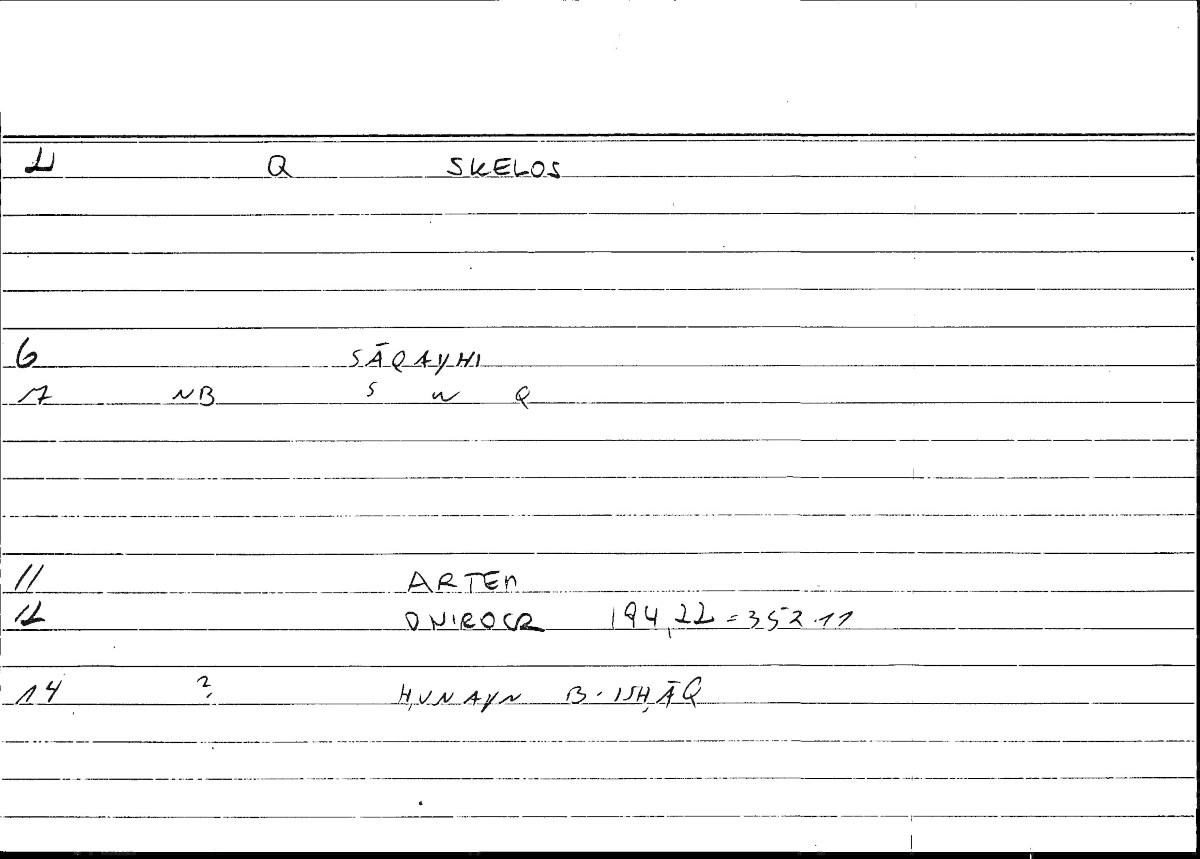 1 Q SKELOS
6 SĀQAYHI
17 NB S W Q
11 ARTEM
12 ONIROCR 194,22 = 352.11
14 ? ḤUNAYN B. ISḤĀQ